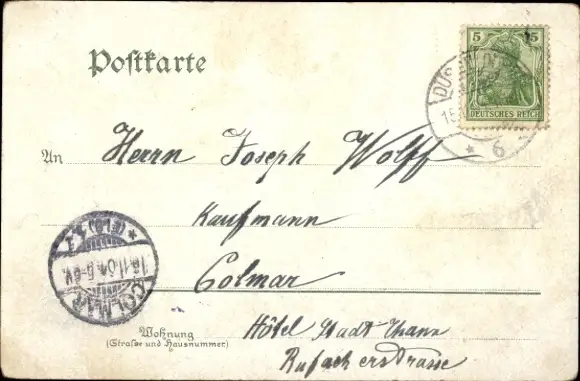 Postkarte
5 5
DEUTSCHES REICH
DÜS
15
* 6
An Herrn Joseph Wolff
Kaufmann
Colmar
* (ELS) *
16.11.04. 6-8V.
COLMAR
Wohnung
(Straße und Hausnummer)
Hôtel Stadt Thann
Rufacherstrasse